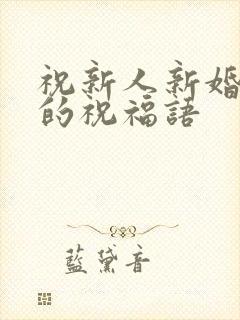 祝新人新婚
的祝福語
藍黛音